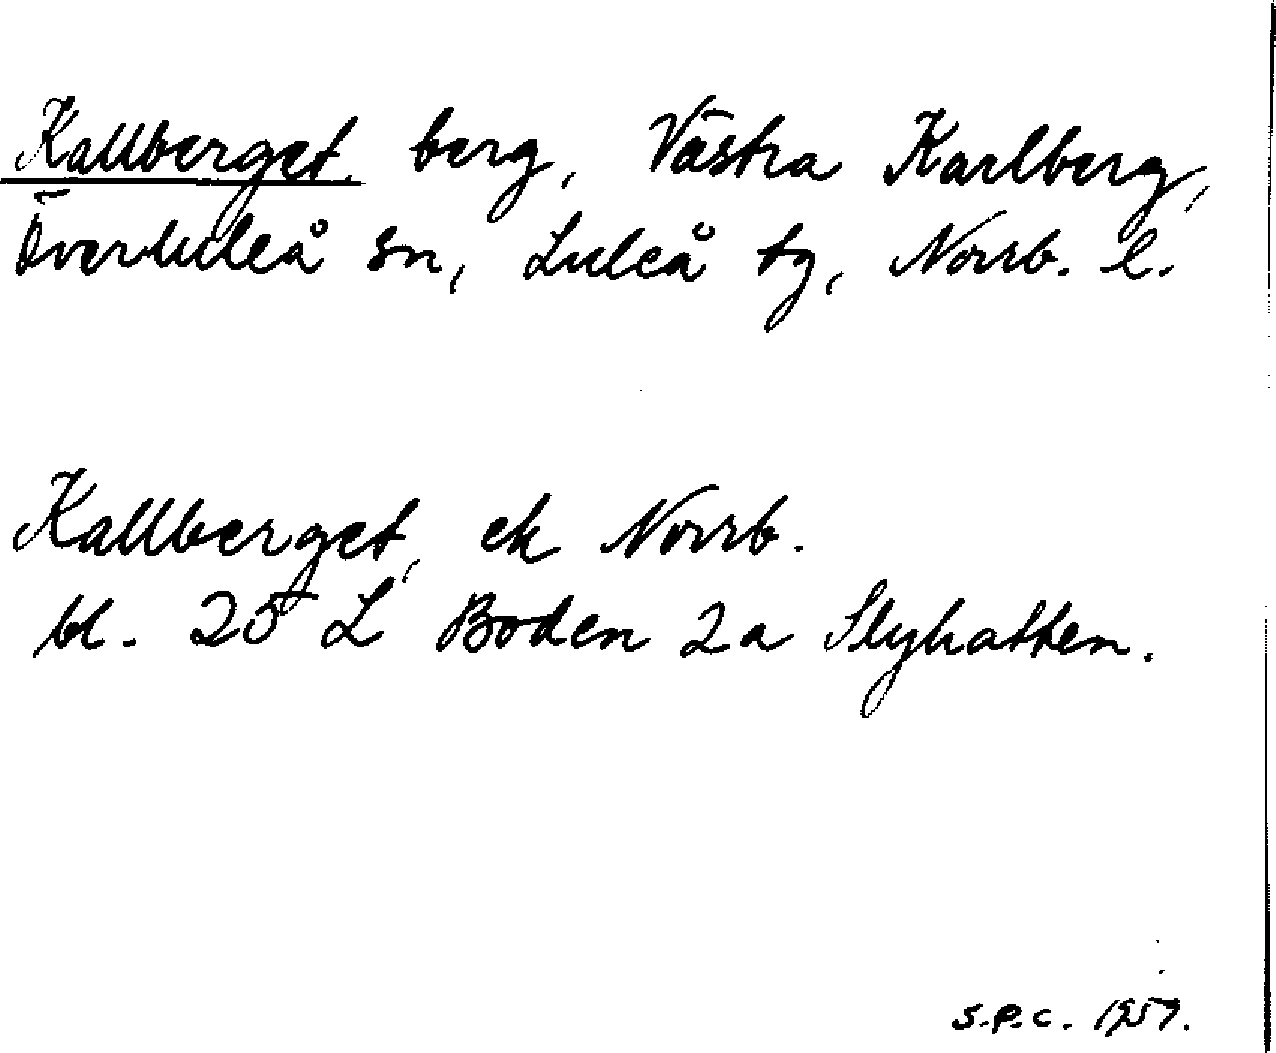 Kallberget, berg, Västra Karlberg,
Överluleå sn, Luleå tg, Norrb. l.
Kallberget, ek Norrb.
bl. 25 L Boden 2a Slyhatten.
S.P.C. 1957.